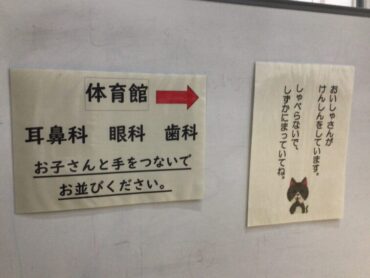 体育館
耳鼻科 眼科 歯科
お子さんと手をつないで
お並びください。
おいしゃさんが
けんしんをしています。
しゃべらないで、
しずかにまっていてね。